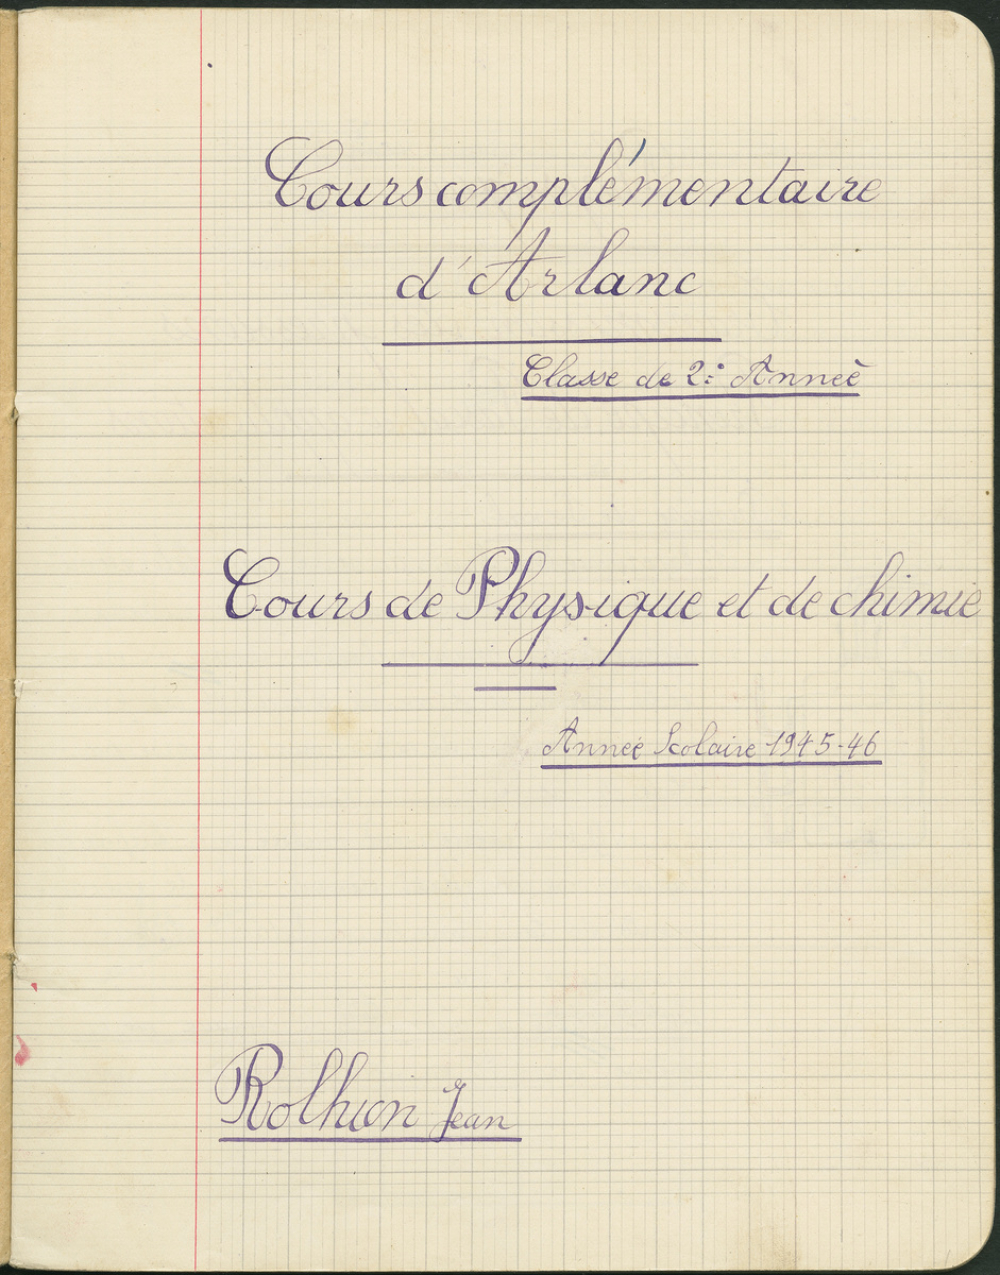 Cours complémentaire
d'Arlanc
Classe de 2e Année
Cours de Physique et de chimie
Année Scolaire 1945-46
Rolhion Jean